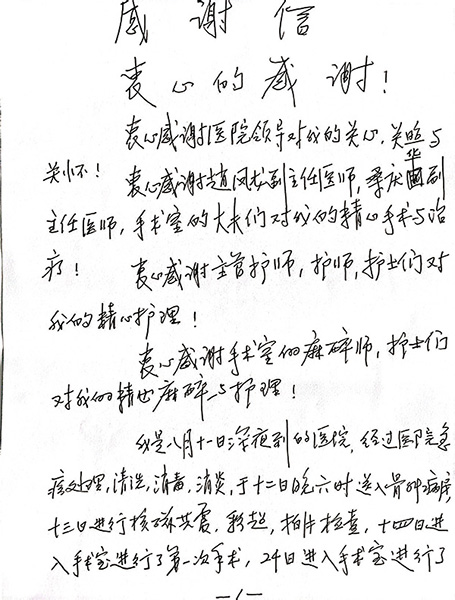 感谢信
衷心的感谢!
衷心感谢医院领导对我的关心、关照与
关怀!衷心感谢赵凤龙副主任医师,桑庆华副
主任医师,手术室的大夫们对我的精心手术与治
疗!衷心感谢主管护师,护师,护士们对
我的精心护理!
衷心感谢手术室的麻碎师,护士们
对我的精心麻碎与护理!
我是八月十一日深夜到的医院,经过医院急
症处理,清洗,消毒,消炎,于十二日晚六时送入骨肿病房,
十三日进行核磁共震,彩超,拍片检查,十四日进
入手术室进行了第一次手术,24日进入手术室进行了
-1-